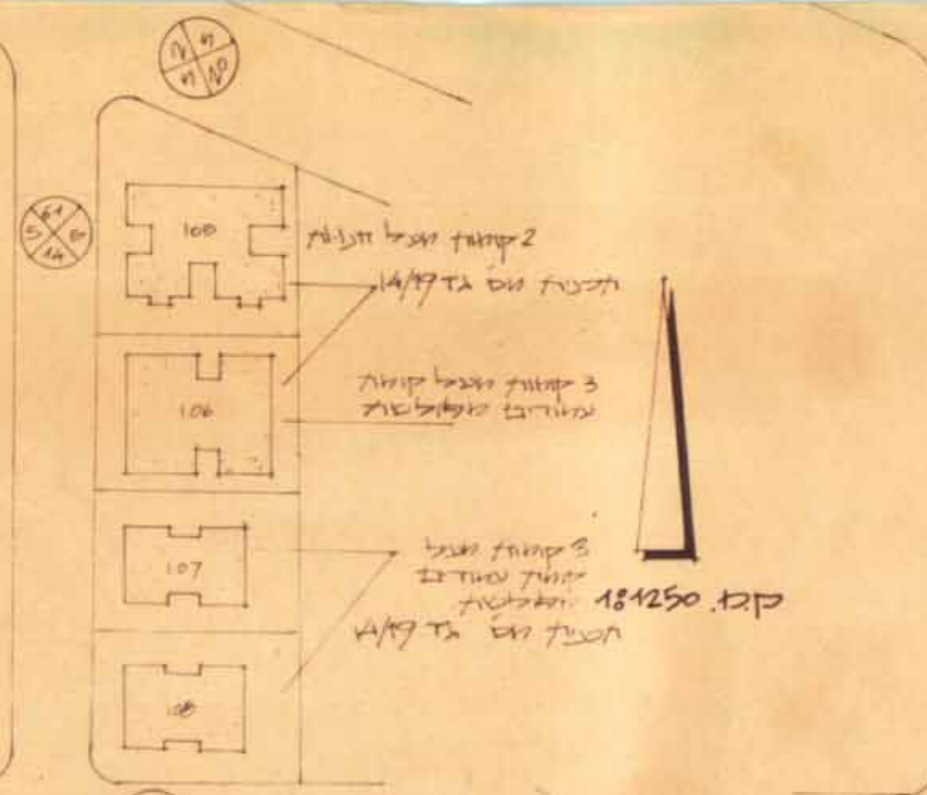 5 61 8 14
105
2 קומות מעל חנויות
תכנית מס' גד 14/19
106
3 קומות מעל קומת
עמודים מפולשת
107
3 קומות מעל
קומת עמודים
מפולשת
תכנית מס' גד 14/19
108
ק.מ. 1:1250